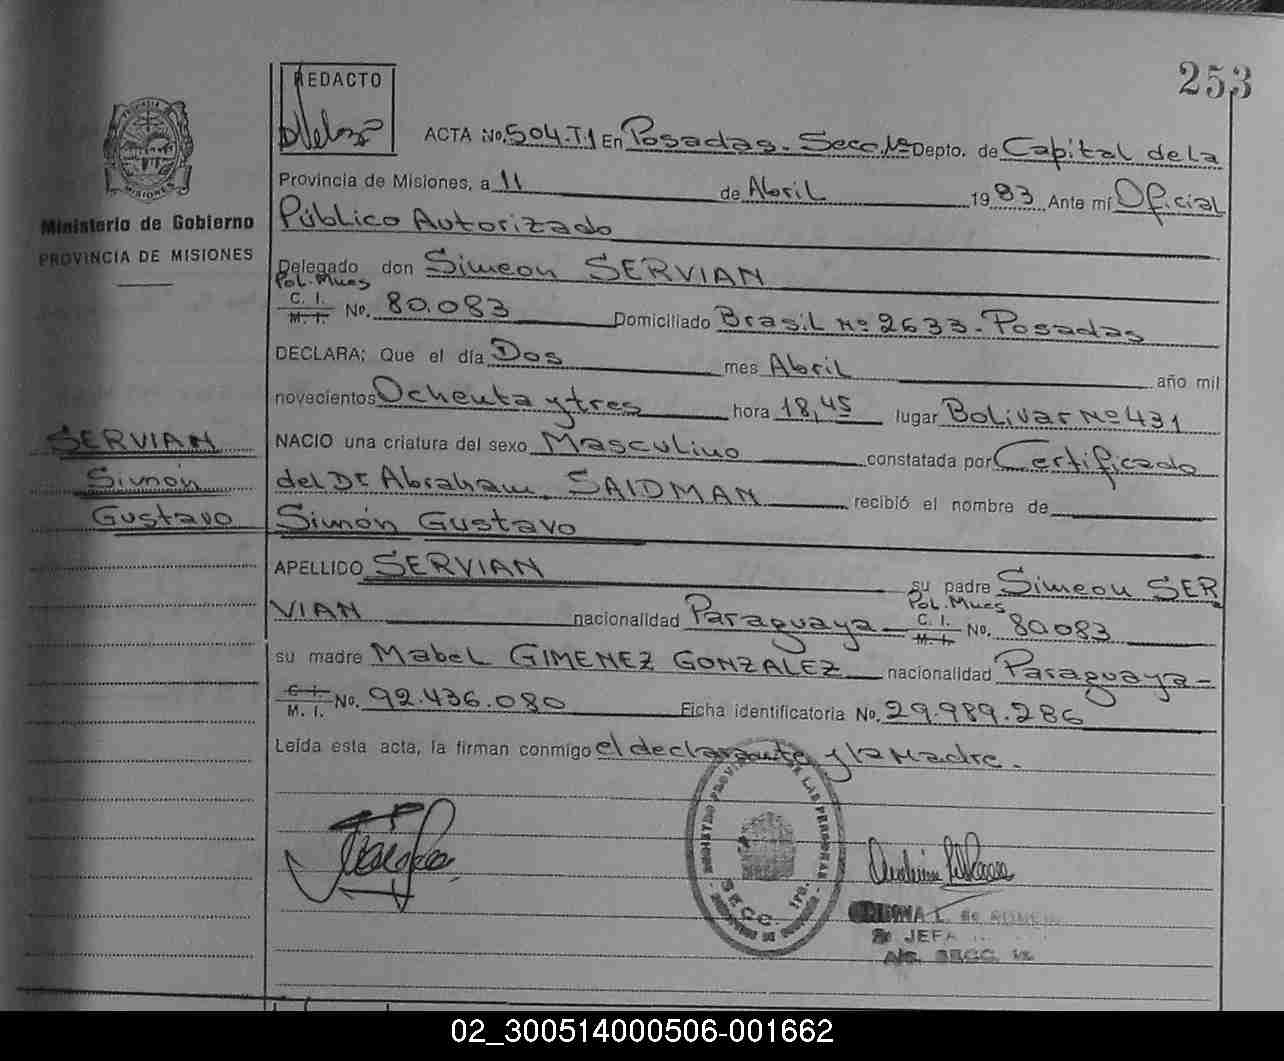 253
REDACTO
ACTA No. 504.T.1 En Posadas. Secc. 1ª Depto. de Capital de la
Provincia de Misiones, a 11 de Abril 1983 Ante mí Oficial
Ministerio de Gobierno
PROVINCIA DE MISIONES
Público Autorizado
Delegado don Simeon SERVIAN
Pol. Mnes
C. I.
M. I. No. 80.083 Domiciliado Brasil Nº 2633. Posadas
DECLARA: Que el día Dos mes Abril año mil
novecientos Ochenta y tres hora 18,45 lugar Bolivar Nº 431
SERVIAN
Simón
Gustavo
NACIO una criatura del sexo Masculino constatada por Certificado
del Dr. Abraham SAIDMAN recibió el nombre de
Simón Gustavo
APELLIDO SERVIAN su padre Simeon SER
VIAN nacionalidad Paraguaya - Pol. Mnes C. I. M. I. No. 80.083
su madre Mabel GIMENEZ GONZALEZ nacionalidad Paraguaya -
C. I.
M. I. No. 92.436.080 Ficha identificatoria No. 29.989.286
Leída esta acta, la firman conmigo el declarante y la Madre.
SECC. 1ª
JEFA
A/C. SECC. 1ª
02_300514000506-001662